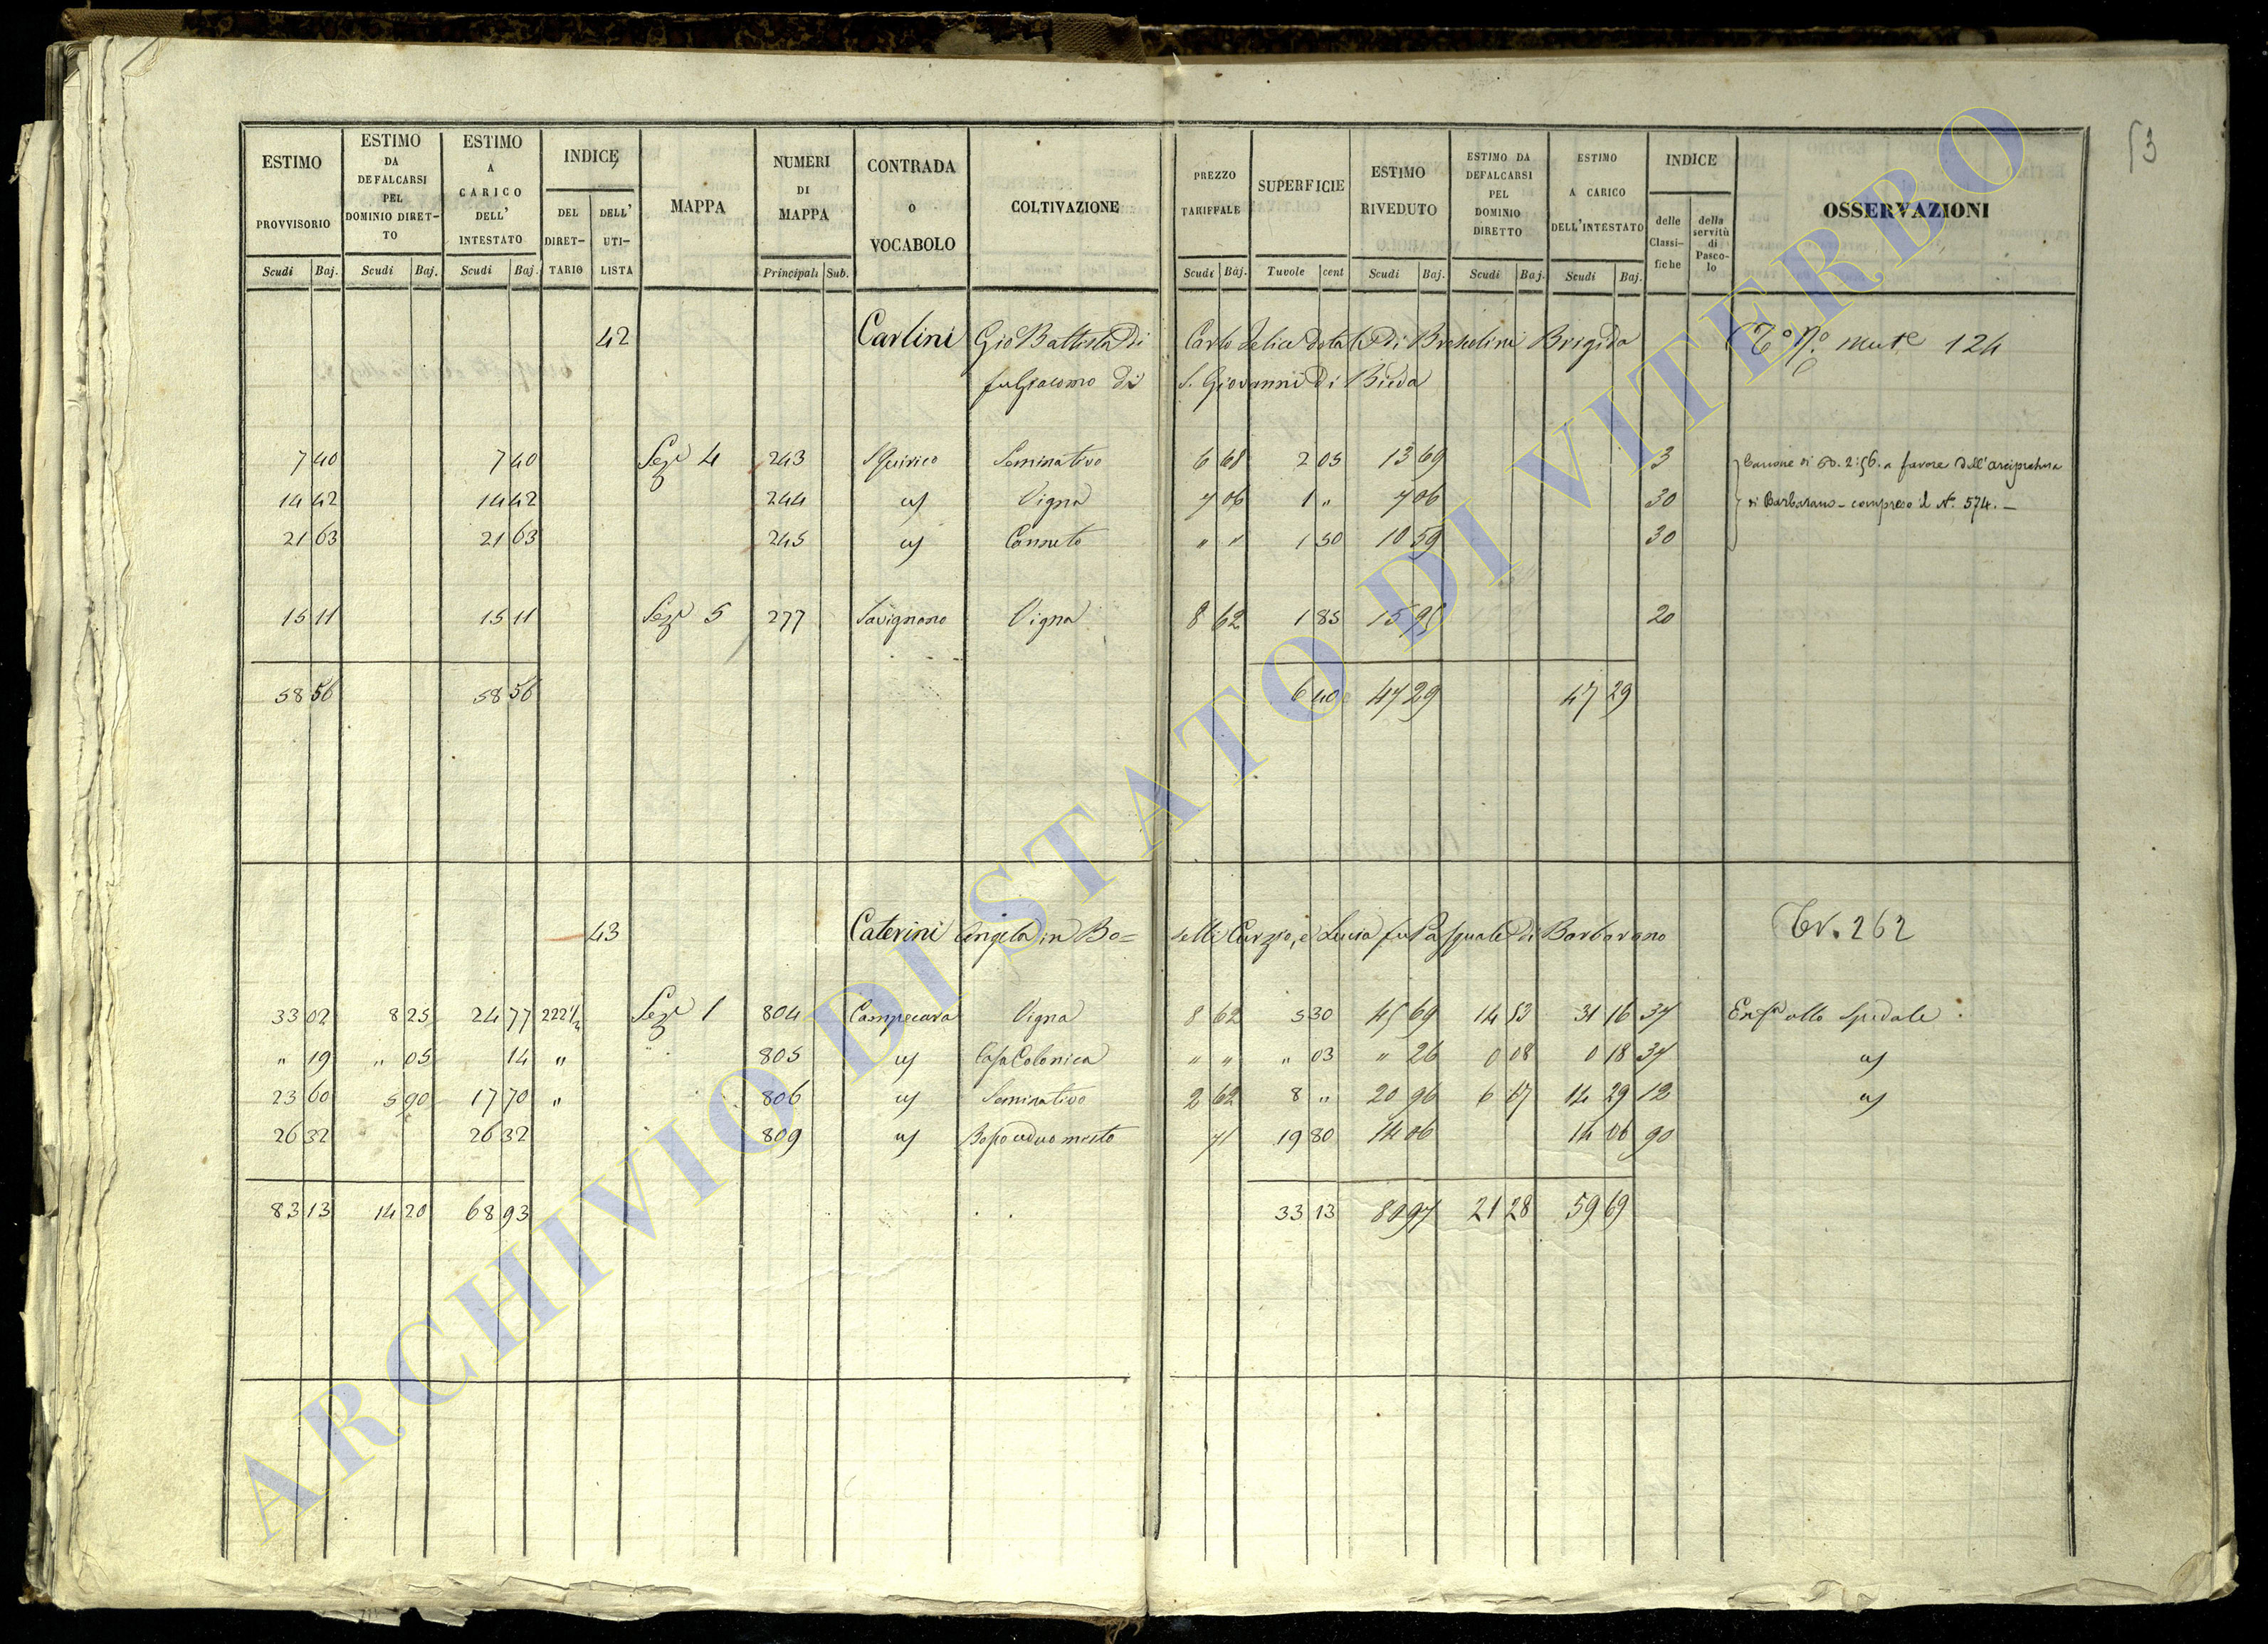 53
ESTIMO PROVVISORIO Scudi Baj.
ESTIMO DA DEFALCARSI PEL DOMINIO DIRET-TO Scudi Baj.
ESTIMO A CARICO DELL' INTESTATO Scudi Baj.
INDICE DEL DIRET-TARIO DELL' UTI-LISTA
MAPPA
NUMERI DI MAPPA Principali Sub.
CONTRADA o VOCABOLO
COLTIVAZIONE
PREZZO TARIFFALE Scudi Baj.
SUPERFICIE Tavole cent
ESTIMO RIVEDUTO Scudi Baj.
ESTIMO DA DEFALCARSI PEL DOMINIO DIRETTO Scudi Baj.
ESTIMO A CARICO DELL'INTESTATO Scudi Baj.
INDICE delle Classi-fiche della servitù di Pasco-lo
OSSERVAZIONI
42 Carlini Gio Battista di Carlo Brigida mute 124
fu Giacomo di S. Giovanni di Bieda
7 40 7 40 Sez 4 243 S Quirico Seminativo 6 68 2 05 13 69 3 Canone di sd. 2:56. a favore dell'arcipretura
14 42 14 42 244 Vigna 7 06 1 " 7 06 30 di Barbarano - compreso il N. 574. -
21 63 21 63 245 Canneto " " 1 50 10 59 30
15 11 15 11 Sez 5 277 Savignano Vigna 8 62 1 85 15 95 20
58 56 58 56 6 40 47 29 47 29
43 Caterini Angela in Bo= selli Curzio, e Lucia fu Pasquale di Barbarano Tr. 262
33 02 8 25 24 77 222 1/2 Sez 1 804 Campecava Vigna 8 62 5 30 45 69 14 53 31 16 37 allo Spedale
" 19 " 05 14 " 805 Casa Colonica " " " 03 " 26 0 08 0 18 37
23 60 5 90 17 70 " 806 Seminativo 2 62 8 " 20 96 6 67 14 29 12
26 32 26 32 809 Bosco ceduo misto 71 19 80 14 06 14 06 90
83 13 14 20 68 93 33 13 80 97 21 28 59 69
ARCHIVIO DI STATO DI VITERBO